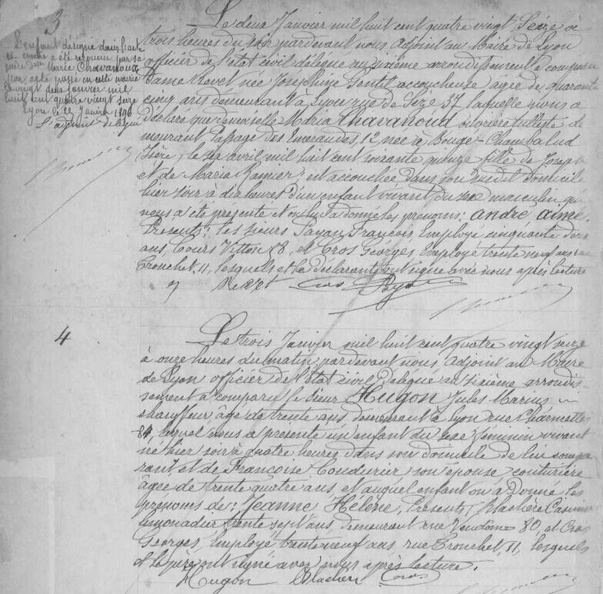 3
L'enfant désigné dans l'acte
ci-contre a été reconnu par sa
mère Marie Chavanoud
par acte passé en cette mairie
le vingt deux janvier mil
huit cent quatre vingt seize
Lyon le 22 Janvier 1896
Le deux Janvier mil huit cent quatre vingt Seize à
trois heures du soir pardevant nous Adjoint au Maire de Lyon
officier de l'état civil délégué au sixième arrondissement a comparu
Dame Revet née Joséphine Gentil accoucheuse âgée de quarante
cinq ans demeurant à Lyon rue de Sèze 37 laquelle nous a
déclaré que demoiselle Maria Chavanoud
demeurant Passage des Emeraudes 12 née à Bougé-Chambalud
Isère, le avril mil huit cent soixante quinze fille de Joseph
et de Maria est accouchée dans son domicile
hier soir à dix heures d'un enfant vivant du sexe masculin qui
nous a été présenté et on lui a donné les prénoms: André Aimé
Présents: les sieurs Payan François Employé cinquante
ans, Cours Vitton 28, et Cros Georges Employé trente neuf ans rue
Tronchet, 11, lesquels et la déclarante ont signé avec nous après lecture
Cros Payan
4
Le trois Janvier mil huit cent quatre vingt seize
à onze heures du matin pardevant nous Adjoint au Maire
de Lyon officier de l'état civil délégué au sixième arrondis-
sement a comparu le sieur Hugon Jules Marius
chauffeur âgé de trente ans demeurant à Lyon rue Charmettes
lequel nous a présenté un enfant du sexe féminin vivant
né hier soir à quatre heures dans son domicile de lui compa-
rant et de Françoise Coudurier son épouse couturière
âgée de trente quatre ans et auquel enfant on a Donné les
prénoms de: Jeanne Hélène, Présents,
trente sept ans demeurant rue Vendôme 80, et Cros
Georges, Employé trente neuf ans rue Tronchet 11, lesquels
et le père ont signé avec nous après lecture.
Hugon Cros